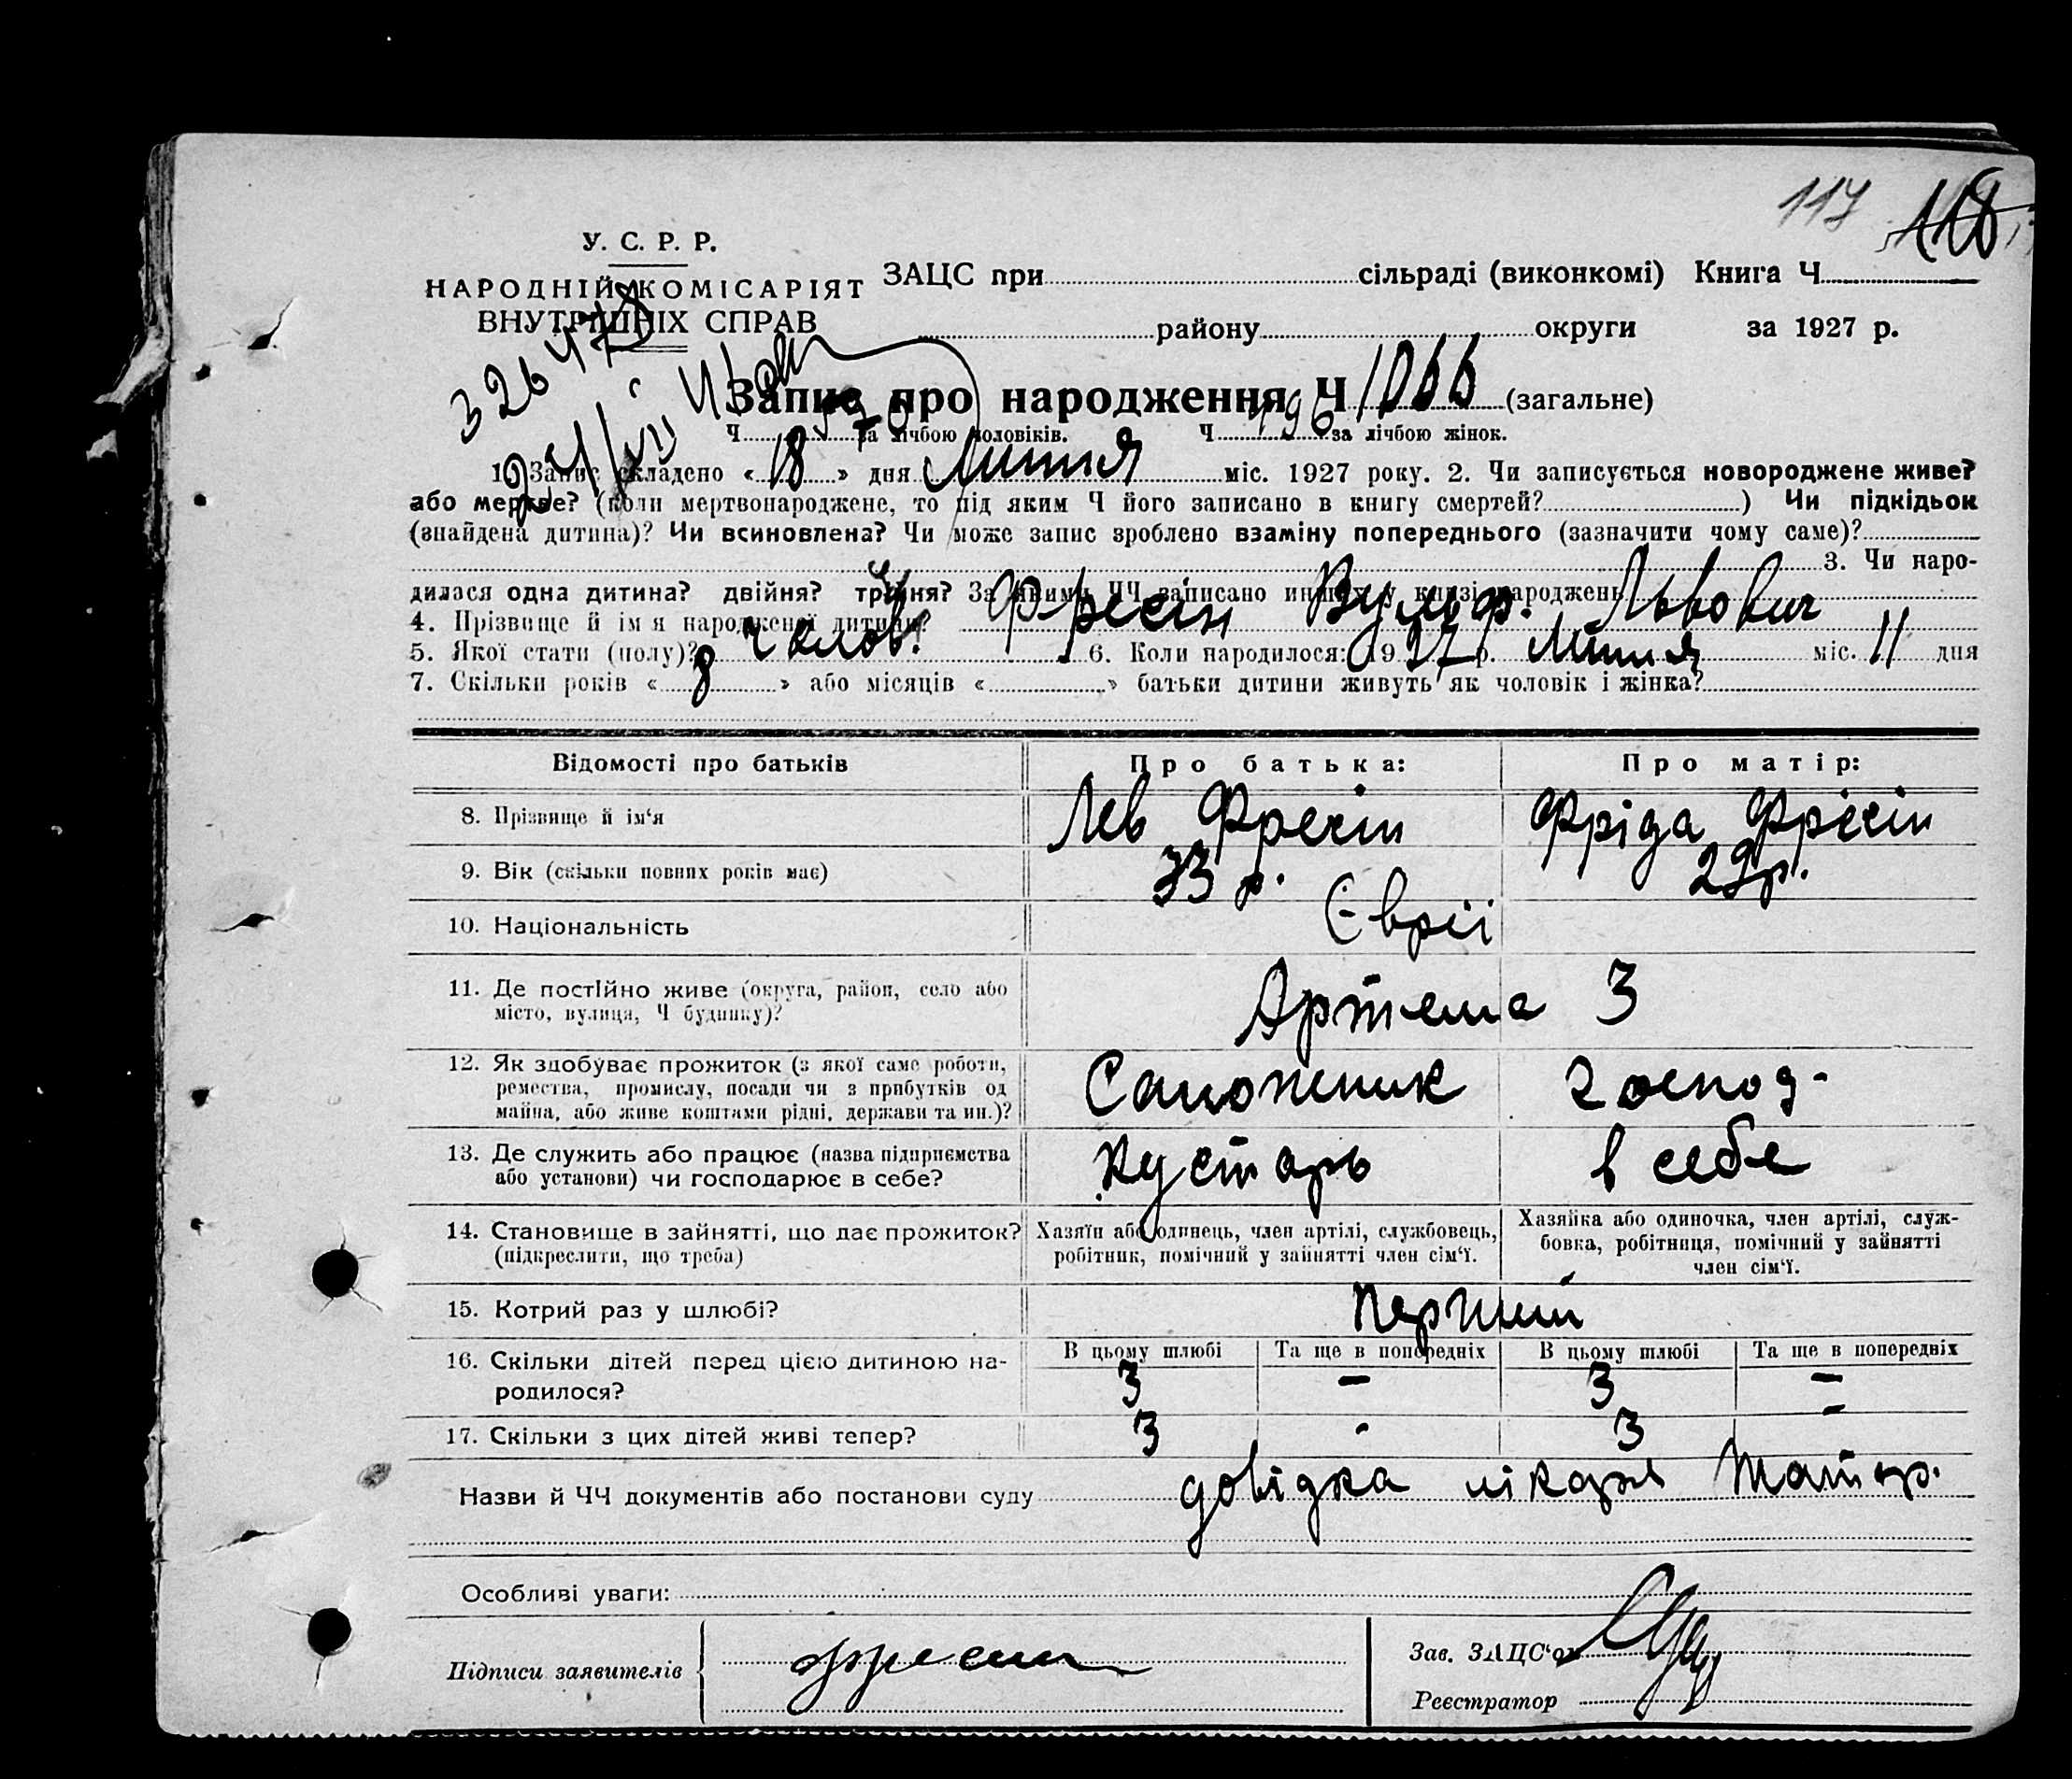 117 118
У. С. Р. Р.
НАРОДНІЙ КОМІСАРІЯТ
ВНУТРІШНІХ СПРАВ
ЗАЦС при сільраді (виконкомі) Книга Ч
району округи за 1927 р.
326478
Запис про народження Ч 1066 (загальне)
Ч 570 за лічбою чоловіків. Ч 496 за лічбою жінок.
1. Запис складено « 18 » дня Липня міс. 1927 року. 2. Чи записується новороджене живе?
або мертве? (коли мертвонароджене, то під яким Ч його записано в книгу смертей? ) Чи підкідьок
(знайдена дитина)? Чи всиновлена? Чи може запис зроблено взаміну попереднього (зазначити чому саме)?
3. Чи наро-
дилася одна дитина? двійня? трійня? За якими ЧЧ записано инших у книзі народжень
4. Прізвище й ім'я народженої дитини? Фресін Вульф. Львович
5. Якої стати (полу)? чолов. 6. Коли народилося: 1927 р. Липня міс. 11 дня
7. Скільки років « 8 » або місяців « » батьки дитини живуть як чоловік і жінка?
Відомості про батьків Про батька: Про матір:
8. Прізвище й ім'я Лев Фресін Фріда Фресін
9. Вік (скільки повних років має) 33 р. 29 р.
10. Національність Євреї
11. Де постійно живе (округа, район, село або
місто, вулиця, Ч будинку)? Артема 3
12. Як здобуває прожиток (з якої саме роботи,
ремества, промислу, посади чи з прибутків од
майна, або живе коштами рідні, держави та ин.)? Сапожник господ-
13. Де служить або працює (назва підприємства
або установи) чи господарює в себе? Кустарь в себе
14. Становище в зайнятті, що дає прожиток?
(підкреслити, що треба)
Хазяїн або одинець, член артілі, службовець,
робітник, помічний у зайнятті член сім'ї.
Хазяйка або одиночка, член артілі, служ-
бовка, робітниця, помічний у зайнятті
член сім'ї.
15. Котрий раз у шлюбі? Перший
16. Скільки дітей перед цією дитиною на-
родилося?
В цьому шлюбі Та ще в попередніх В цьому шлюбі Та ще в попередніх
3 – 3 –
17. Скільки з цих дітей живі тепер? 3 - 3 –
Назви й ЧЧ документів або постанови суду довідка лікаря
Особливі уваги:
Підписи заявителів Фресин
Зав. ЗАЦС'ом
Реєстратор